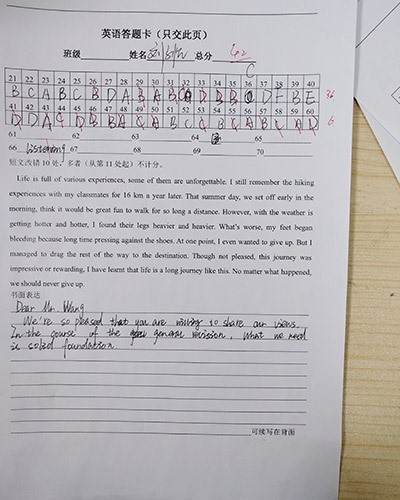 英语答题卡（只交此页）
班级 姓名 总分 62
C
21 22 23 24 25 26 27 28 29 30 31 32 33 34 35 36 37 38 39 40
B C A B C B D A B A B A D B B C D F B E 36
41 42 43 44 45 46 47 48 49 50 51 52 53 54 55 56 57 58 59 60
D D A C D B B A C A B C C A B 6
61 62 63 64 65
66 Listening 67 68 69 70
短文改错 10 处，多者（从第 11 处起）不计分。
Life is full of various experiences, some of them are unforgettable. I still remember the hiking
experiences with my classmates for 16 km a year later. That summer day, we set off early in the
morning, think it would be great fun to walk for so long a distance. However, with the weather is
getting hotter and hotter, I found their legs heavier and heavier. What's worse, my feet began
bleeding because long time pressing against the shoes. At one point, I even wanted to give up. But I
managed to drag the rest of the way to the destination. Though not pleased, this journey was
impressive or rewarding, I have learnt that life is a long journey like this. No matter what happened,
we should never give up.
书面表达
Dear Mr Wang
We're so pleased that you are willing to share our views.
In the course of the general revision, what we need
is solid foundation
可续写在背面